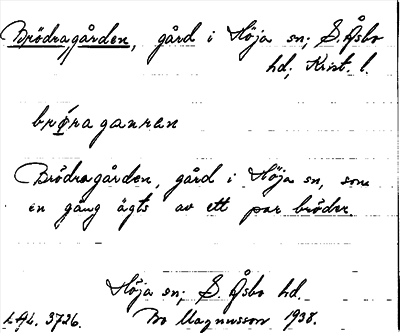 Brödragården, gård i Höja sn; S. Åsbo
hd; Krist. l.
brǿraganren
Brödragården, gård i Höja sn, som
en gång ägts av ett par bröder.
Höja sn; S. Åsbo hd.
LAL. 3726. Bo Magnusson 1938.